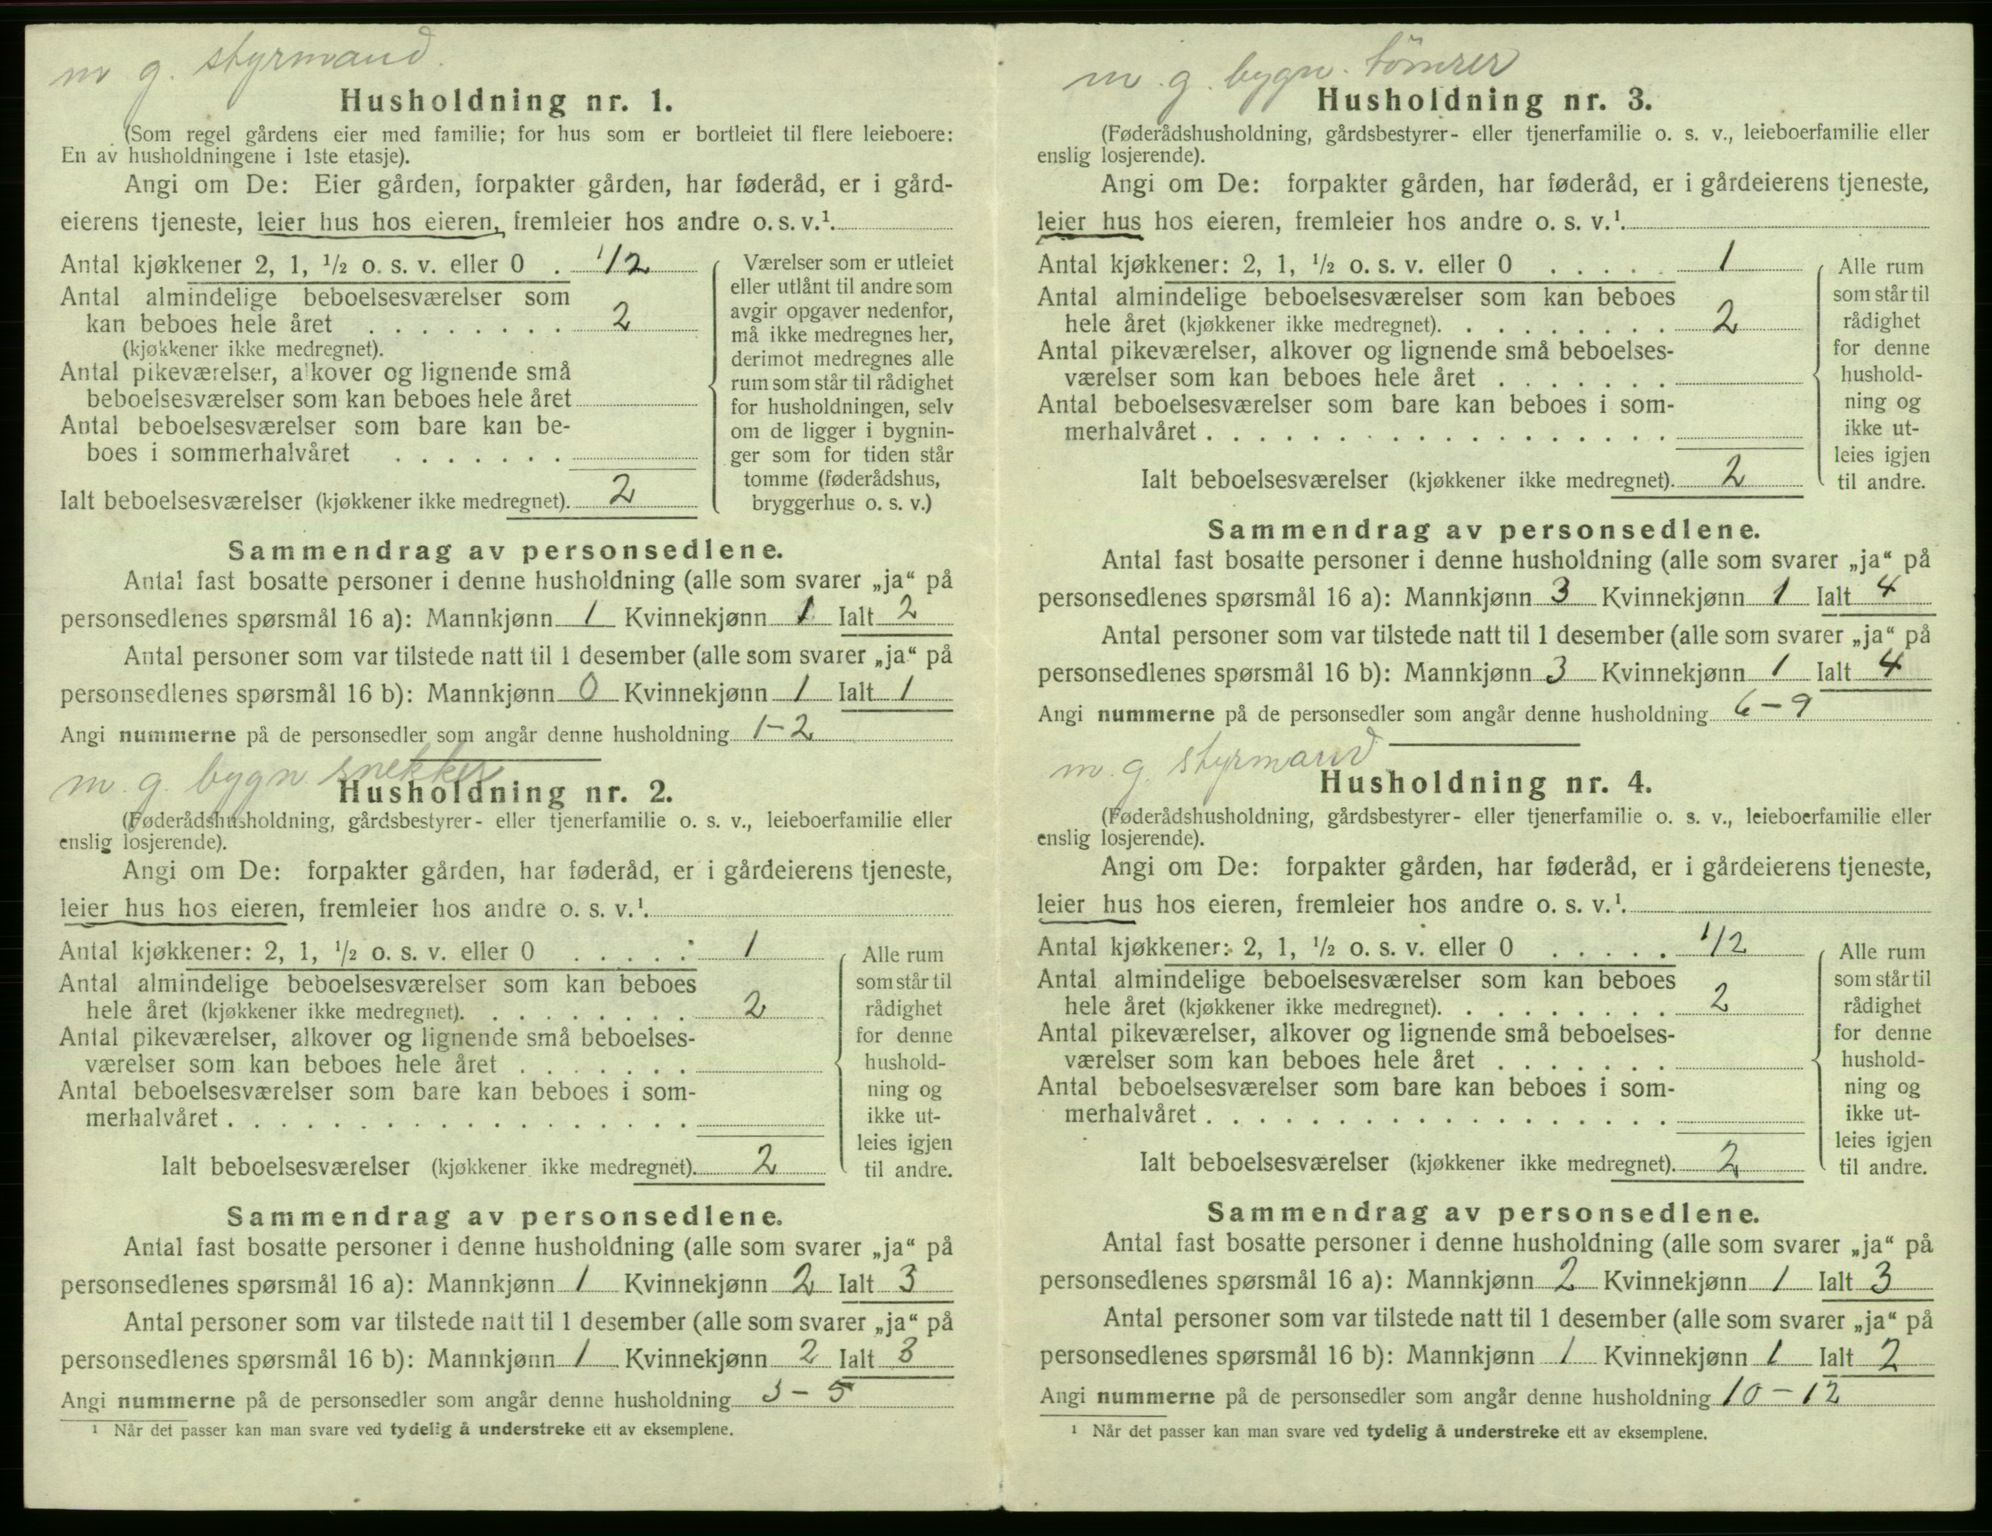 m g. styrmand.
Husholdning nr. 1.
(Som regel gårdens eier med familie; for hus som er bortleiet til flere leieboere:
En av husholdningene i 1ste etasje).
Angi om De: Eier gården, forpakter gården, har føderåd, er i gård-
eierens tjeneste, leier hus hos eieren, fremleier hos andre o. s. v.¹
Antal kjøkkener 2, 1, ½ o. s. v. eller 0 . 1/2
Antal almindelige beboelsesværelser som
kan beboes hele året . . . . . . . . 2
(kjøkkener ikke medregnet).
Antal pikeværelser, alkover og lignende små
beboelsesværelser som kan beboes hele året
Antal beboelsesværelser som bare kan be-
boes i sommerhalvåret . . . . . . .
Ialt beboelsesværelser (kjøkkener ikke medregnet). 2
Værelser som er utleiet
eller utlånt til andre som
avgir opgaver nedenfor,
må ikke medregnes her,
derimot medregnes alle
rum som står til rådighet
for husholdningen, selv
om de ligger i bygnin-
ger som for tiden står
tomme (føderådshus,
bryggerhus o. s. v.)
Sammendrag av personsedlene.
Antal fast bosatte personer i denne husholdning (alle som svarer „ja“ på
personsedlenes spørsmål 16 a): Mannkjønn 1 Kvinnekjønn 1 Ialt 2
Antal personer som var tilstede natt til 1 desember (alle som svarer „ja“ på
personsedlenes spørsmål 16 b): Mannkjønn 0 Kvinnekjønn 1 Ialt 1
Angi nummerne på de personsedler som angår denne husholdning 1-2
m. g. bygn snekker
Husholdning nr. 2.
(Føderådshusholdning, gårdsbestyrer- eller tjenerfamilie o. s. v., leieboerfamilie eller
enslig losjerende).
Angi om De: forpakter gården, har føderåd, er i gårdeierens tjeneste,
leier hus hos eieren, fremleier hos andre o. s. v.¹.
Antal kjøkkener: 2, 1, ½ o. s. v. eller 0 . . . . . 1
Antal almindelige beboelsesværelser som kan beboes
hele året (kjøkkener ikke medregnet). . . . . . . . . 2
Antal pikeværelser, alkover og lignende små beboelses-
værelser som kan beboes hele året . . . . . . .
Antal beboelsesværelser som bare kan beboes i som-
merhalvåret . . . . . . . . . . . . . . . . . .
Ialt beboelsesværelser (kjøkkener ikke medregnet). 2
Alle rum
som står til
rådighet
for denne
hushold-
ning og
ikke ut-
leies igjen
til andre.
Sammendrag av personsedlene.
Antal fast bosatte personer i denne husholdning (alle som svarer „ja“ på
personsedlenes spørsmål 16 a): Mannkjønn 1 Kvinnekjønn 2 Ialt 3
Antal personer som var tilstede natt til 1 desember (alle som svarer „ja“ på
personsedlenes spørsmål 16 b): Mannkjønn 1 Kvinnekjønn 2 Ialt 3
Angi nummerne på de personsedler som angår denne husholdning 3-5
¹ Når det passer kan man svare ved tydelig å understreke ett av eksemplene.
m. g. bygn. tömrer
Husholdning nr. 3.
(Føderådshusholdning, gårdsbestyrer- eller tjenerfamilie o. s. v., leieboerfamilie eller
enslig losjerende).
Angi om De: forpakter gården, har føderåd, er i gårdeierens tjeneste,
leier hus hos eieren, fremleier hos andre o. s. v.¹.
Antal kjøkkener: 2, 1, ½ o. s. v. eller 0 . . . . . 1
Antal almindelige beboelsesværelser som kan beboes
hele året (kjøkkener ikke medregnet). . . . . . . . . 2
Antal pikeværelser, alkover og lignende små beboelses-
værelser som kan beboes hele året . . . . . . .
Antal beboelsesværelser som bare kan beboes i som-
merhalvåret . . . . . . . . . . . . . . . . . .
Ialt beboelsesværelser (kjøkkener ikke medregnet). 2
Alle rum
som står til
rådighet
for denne
hushold-
ning og
ikke ut-
leies igjen
til andre.
Sammendrag av personsedlene.
Antal fast bosatte personer i denne husholdning (alle som svarer „ja“ på
personsedlenes spørsmål 16 a): Mannkjønn 3 Kvinnekjønn 1 Ialt 4
Antal personer som var tilstede natt til 1 desember (alle som svarer „ja“ på
personsedlenes spørsmål 16 b): Mannkjønn 3 Kvinnekjønn 1 Ialt 4
Angi nummerne på de personsedler som angår denne husholdning 6-9
m. g. styrmand
Husholdning nr. 4.
(Føderådshusholdning, gårdsbestyrer- eller tjenerfamilie o. s. v., leieboerfamilie eller
enslig losjerende).
Angi om De: forpakter gården, har føderåd, er i gårdeierens tjeneste,
leier hus hos eieren, fremleier hos andre o. s. v.¹.
Antal kjøkkener: 2, 1, ½ o. s. v. eller 0 . . . . . 1/2
Antal almindelige beboelsesværelser som kan beboes
hele året (kjøkkener ikke medregnet). . . . . . . . . 2
Antal pikeværelser, alkover og lignende små beboelses-
værelser som kan beboes hele året . . . . . . .
Antal beboelsesværelser som bare kan beboes i som-
merhalvåret . . . . . . . . . . . . . . . . . .
Ialt beboelsesværelser (kjøkkener ikke medregnet). 2
Alle rum
som står til
rådighet
for denne
hushold-
ning og
ikke ut-
leies igjen
til andre.
Sammendrag av personsedlene.
Antal fast bosatte personer i denne husholdning (alle som svarer „ja“ på
personsedlenes spørsmål 16 a): Mannkjønn 2 Kvinnekjønn 1 Ialt 3
Antal personer som var tilstede natt til 1 desember (alle som svarer „ja“ på
personsedlenes spørsmål 16 b): Mannkjønn 1 Kvinnekjønn 1 Ialt 2
Angi nummerne på de personsedler som angår denne husholdning 10-12
¹ Når det passer kan man svare ved tydelig å understreke ett av eksemplene.